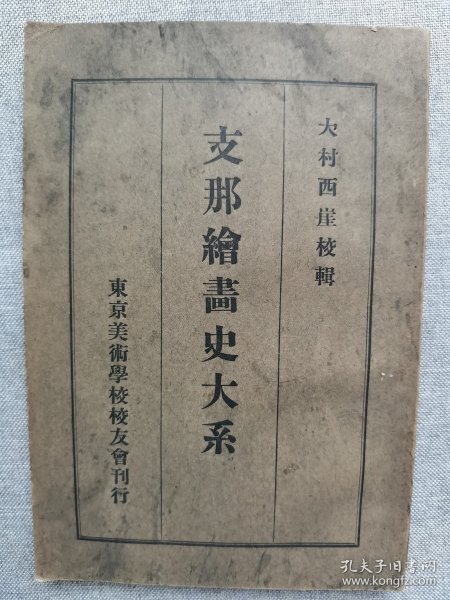 大村西崖校輯
支那繪畵史大系
東京美術學校校友會刊行
孔夫子旧书网
www.kongfz.com